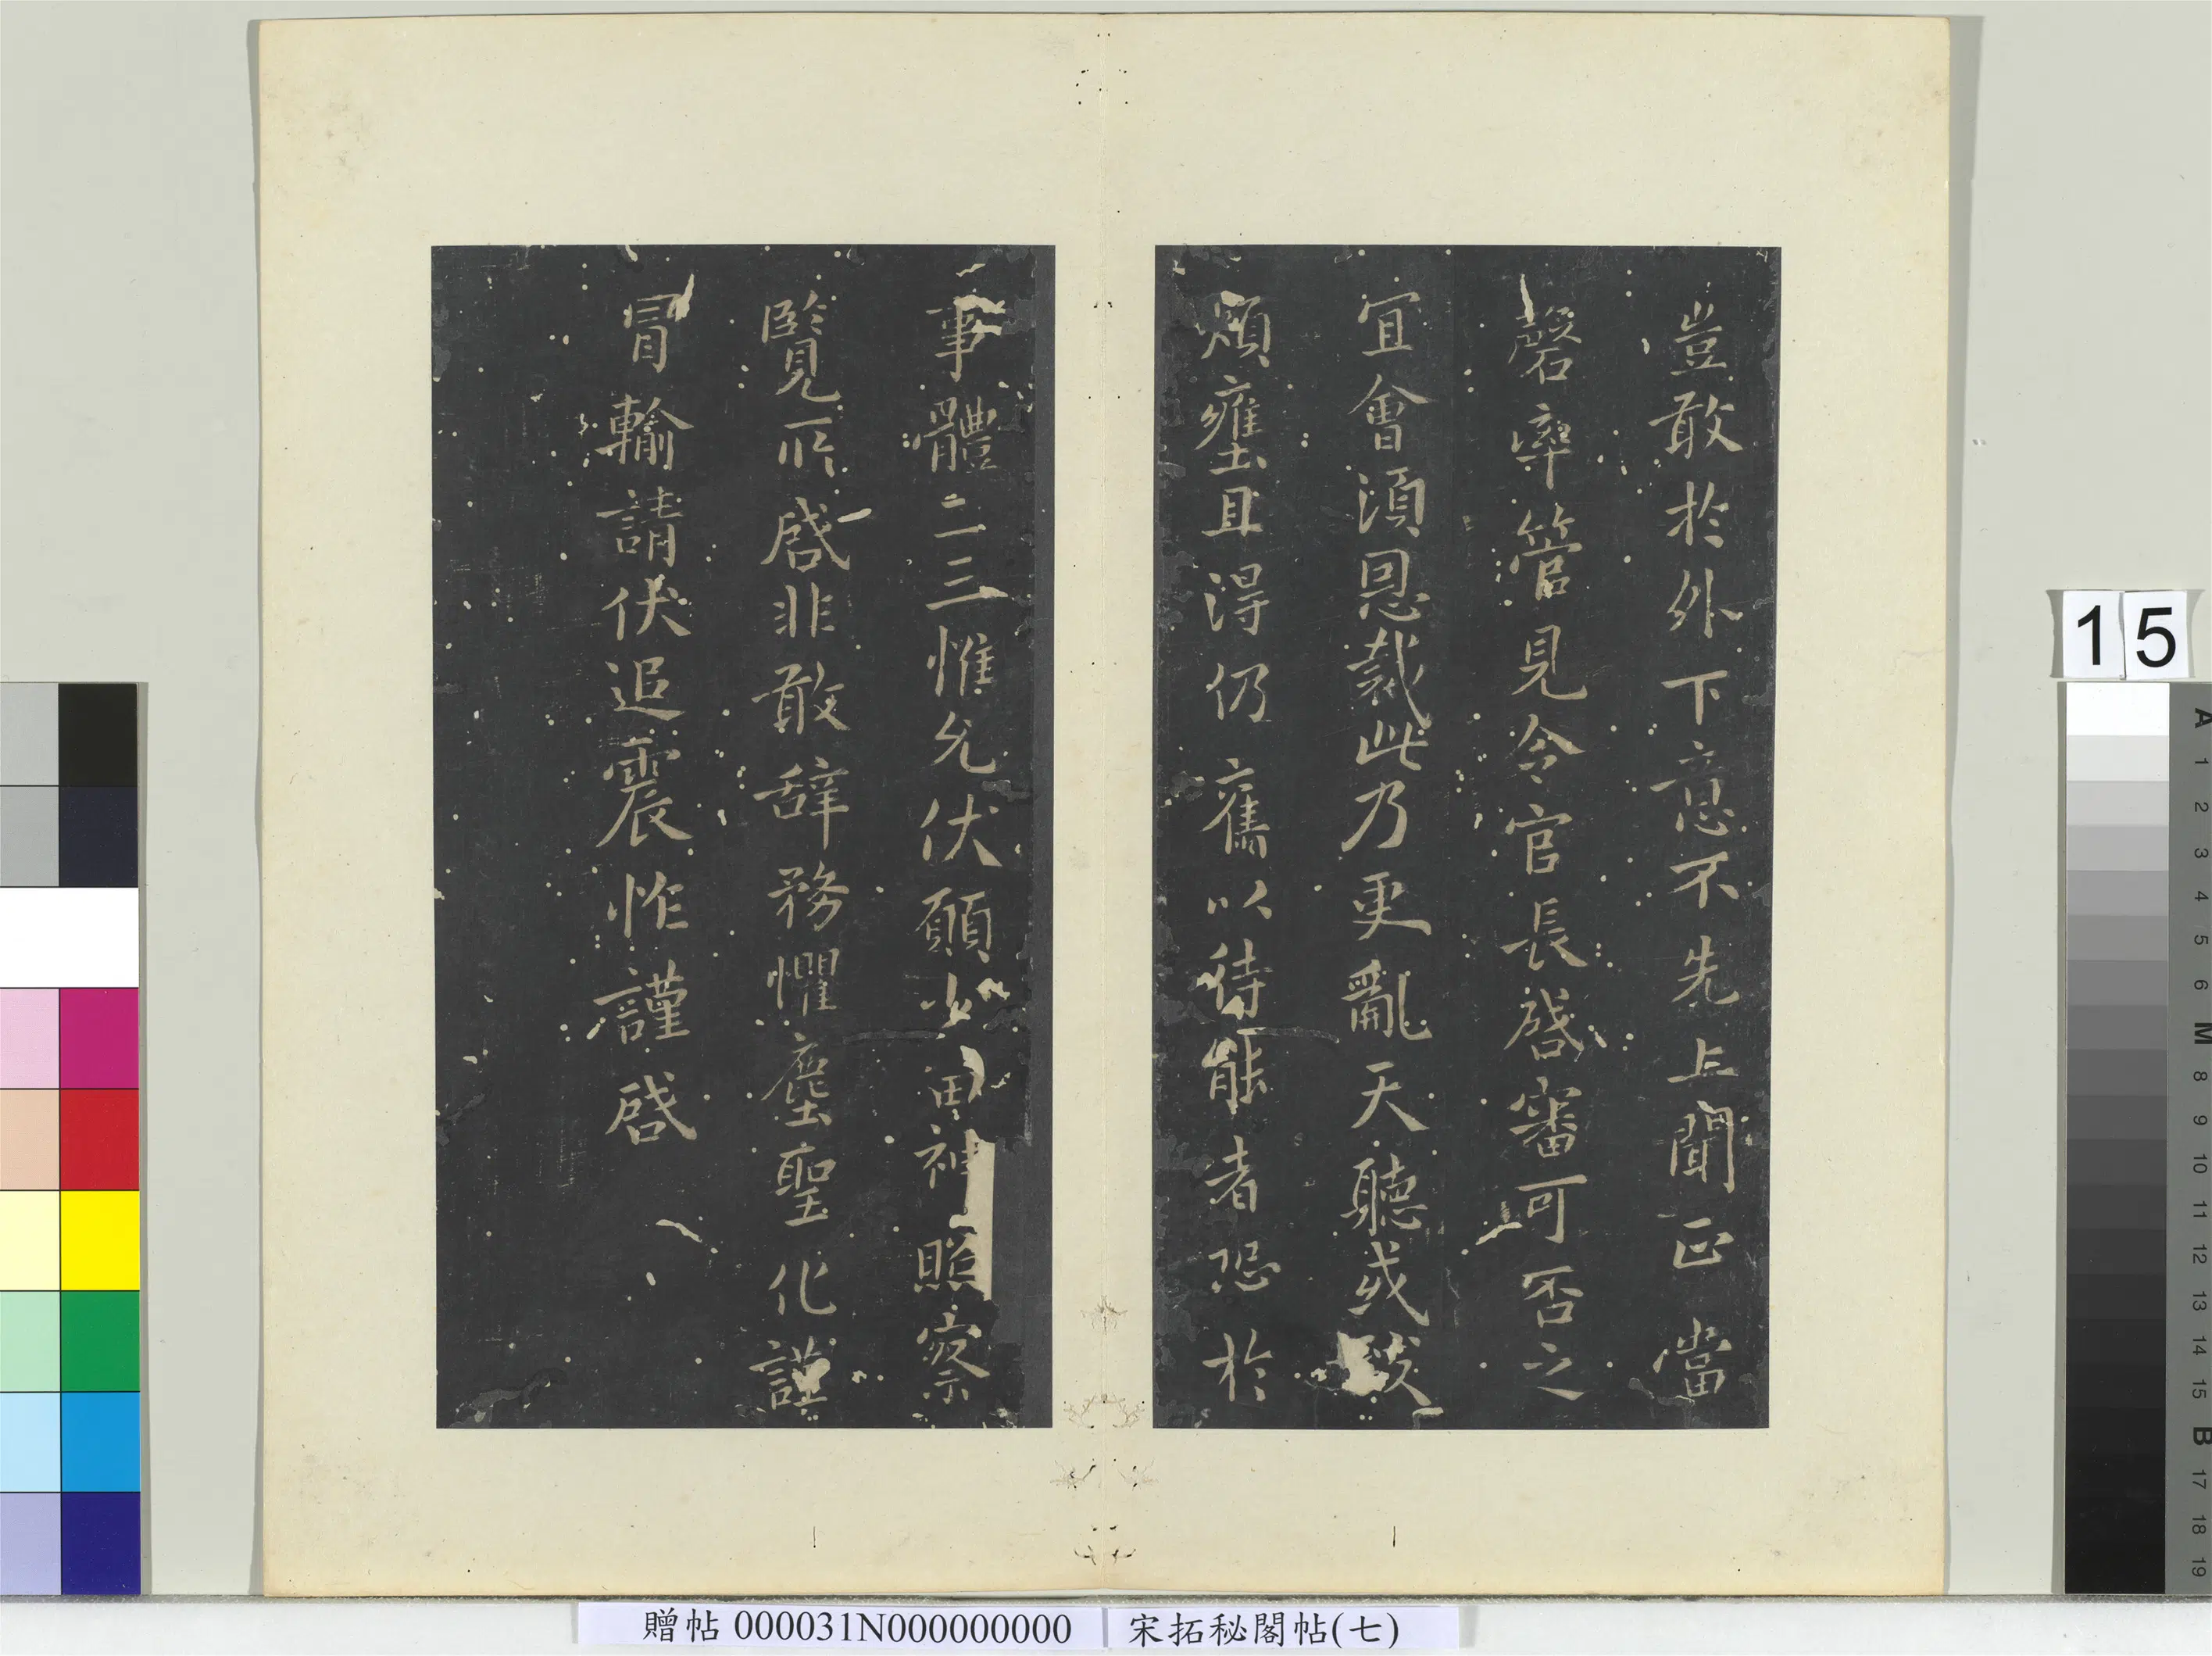 豈敢於外下意不先上聞正當
罄率管見令官長啓審可否之
宜會須恩裁此乃更亂天聽或
煩壅耳得仍舊以待能者恐於
事體二三惟允伏願少留神照察
覽所啓非敢辞務懼塵聖化謹
冒輸請伏追震怍謹啓
15
贈帖 000031N000000000
宋拓秘閣帖(七)
A
1
2
3
4
5
6
M
8
9
10
11
12
13
14
15
B
17
18
19